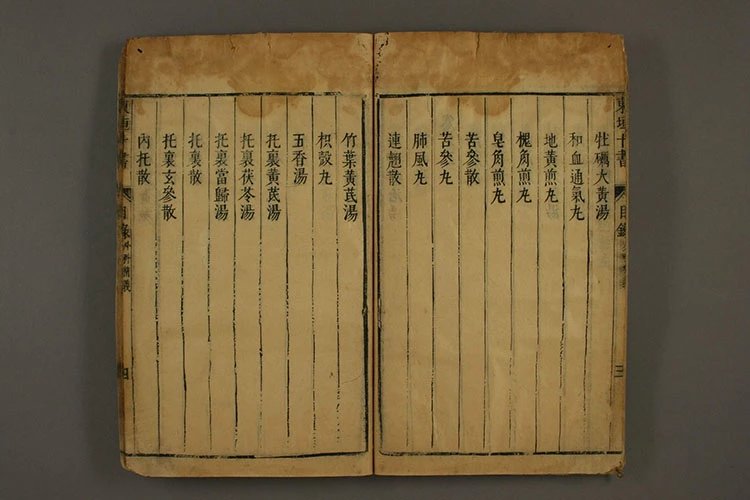 東垣十書 目錄 三
牡礪大黃湯
和血通氣丸
地黃煎丸
槐角煎丸
皂角煎丸
苦參散
苦參丸
肺風丸
連翹散
竹葉黃茋湯
枳殼丸
五香湯
托裏黃茋湯
托裏茯苓湯
托裏當歸湯
托裏散
托裏玄參散
內托散
東垣十書 目錄 外科精義 四